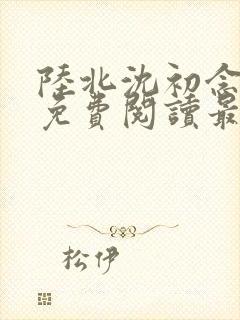 陸北沈初念
免費閱讀最
松伊